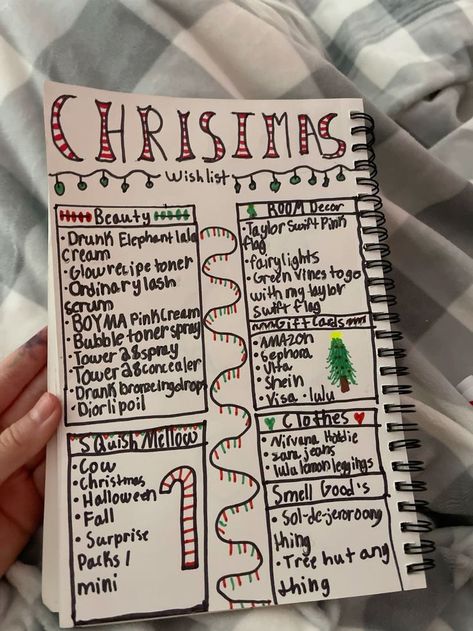 CHRISTMAS
wishlist
Beauty
• Drunk Elephant lala
cream
• Glow recipe toner
• Ordinary lash
serum
• BOYMA Pink Cream
• Bubble toner spray
• Tower 28 spray
• Tower 28 concealer
• Drank bronzeing drops
• Dior li poil
S'Quish Mellow
• Cow
• Christmas
• Halloween
• Fall
• Surprise
Packs /
mini
ROOM Decor
• Taylor Swift Pink
flag
• fairy lights
• Green vines to go
with my taylor
Swift flag
Gift Cards
• AMAZON
• Sephora
• Shein
• Visa • lulu
Clothes
• Nirvana Hoddie
• zara jeans
• lulu lemon leggings
Smell Good's
• Sol-de-jeror
thing
• Tree hut ang
thing